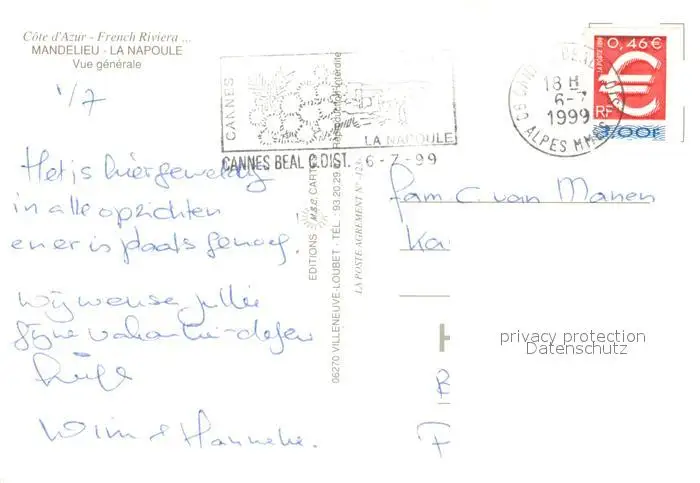 Côte d'Azur - French Riviera ...
MANDELIEU - LA NAPOULE
Vue générale
1/7
Het is hier geweldig
in alle opzichten
en er is plaats genoeg.
Wij wensen jullie
fijne vakantie-dagen
Wim & Hanneke.
CANNES
LA NAPOULE
CANNES BEAL C.DIST. 6-7-99
Reproduction interdite
EDITIONS M.S.B. CART
06270 VILLENEUVE-LOUBET - TÉL. 93.20.29
LA POSTE AGREMENT N°
18 H
6-7
1999
ALPES MMES
LA POSTE 1999
0,46 €
€
RF
3,00F
fam C. van Manen
Ka
H
B
F
privacy protection
Datenschutz